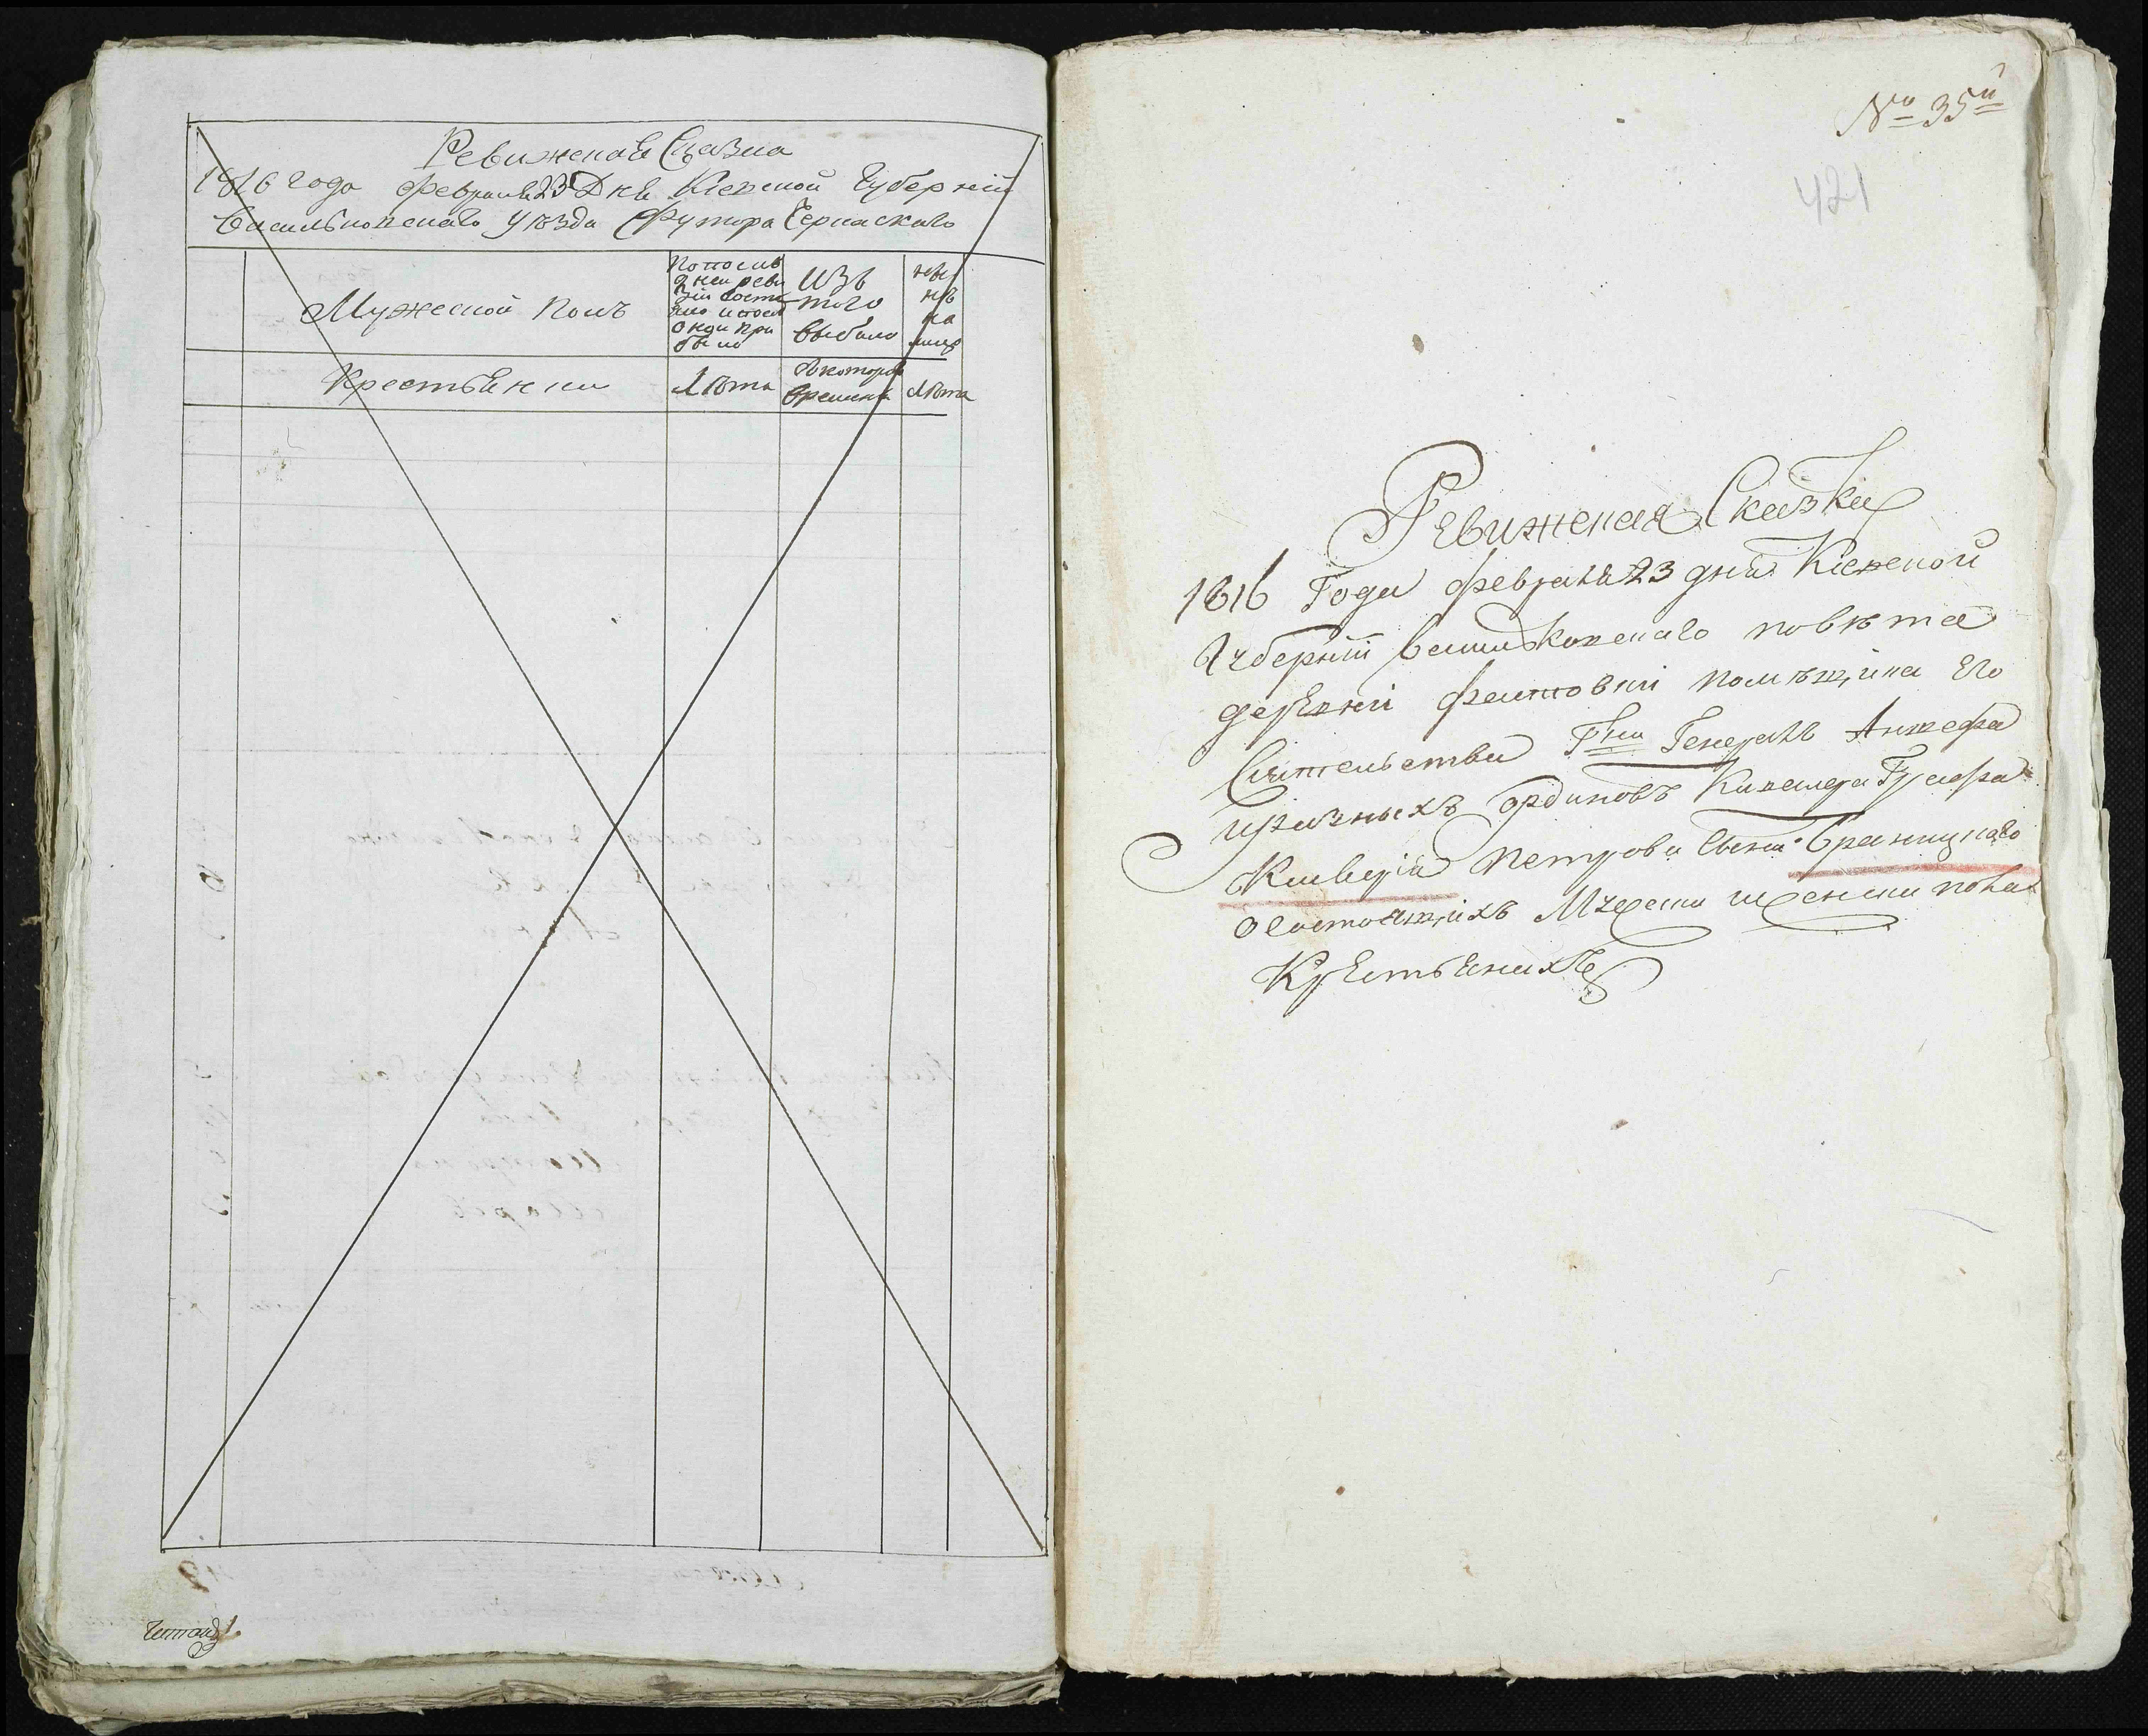 Ревижская Сказка
1816 года февраля 23 Дня Кіевской Губерніи
Васильковскаго уѣзда Футора Чернаскаго
Мужеской полъ
по послѣ
дней реви
зіи состо
яло и посл
оной при
было
изъ
того
выбыло
ны
нѣ
на
лицо
Крестьяне
Лѣта
Лѣта
Читалъ
№ 35й
421
Ревижская Сказка
1816 Года февраля 23 дня Кіевской
Губерніи Васильковскаго повѣта
деревни помѣщика Его
Сіятельства Гна Генералъ Аншефа
и разныхъ Ординовъ Кавалера Графа
Ксаверія Петрова Сына Браницкаго
О состоящихъ Мужеска и женска пола
Крестьянихъ